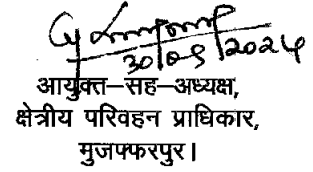 30/09/2024
आयुक्त-सह-अध्यक्ष,
क्षेत्रीय परिवहन प्राधिकार,
मुजफ्फरपुर।